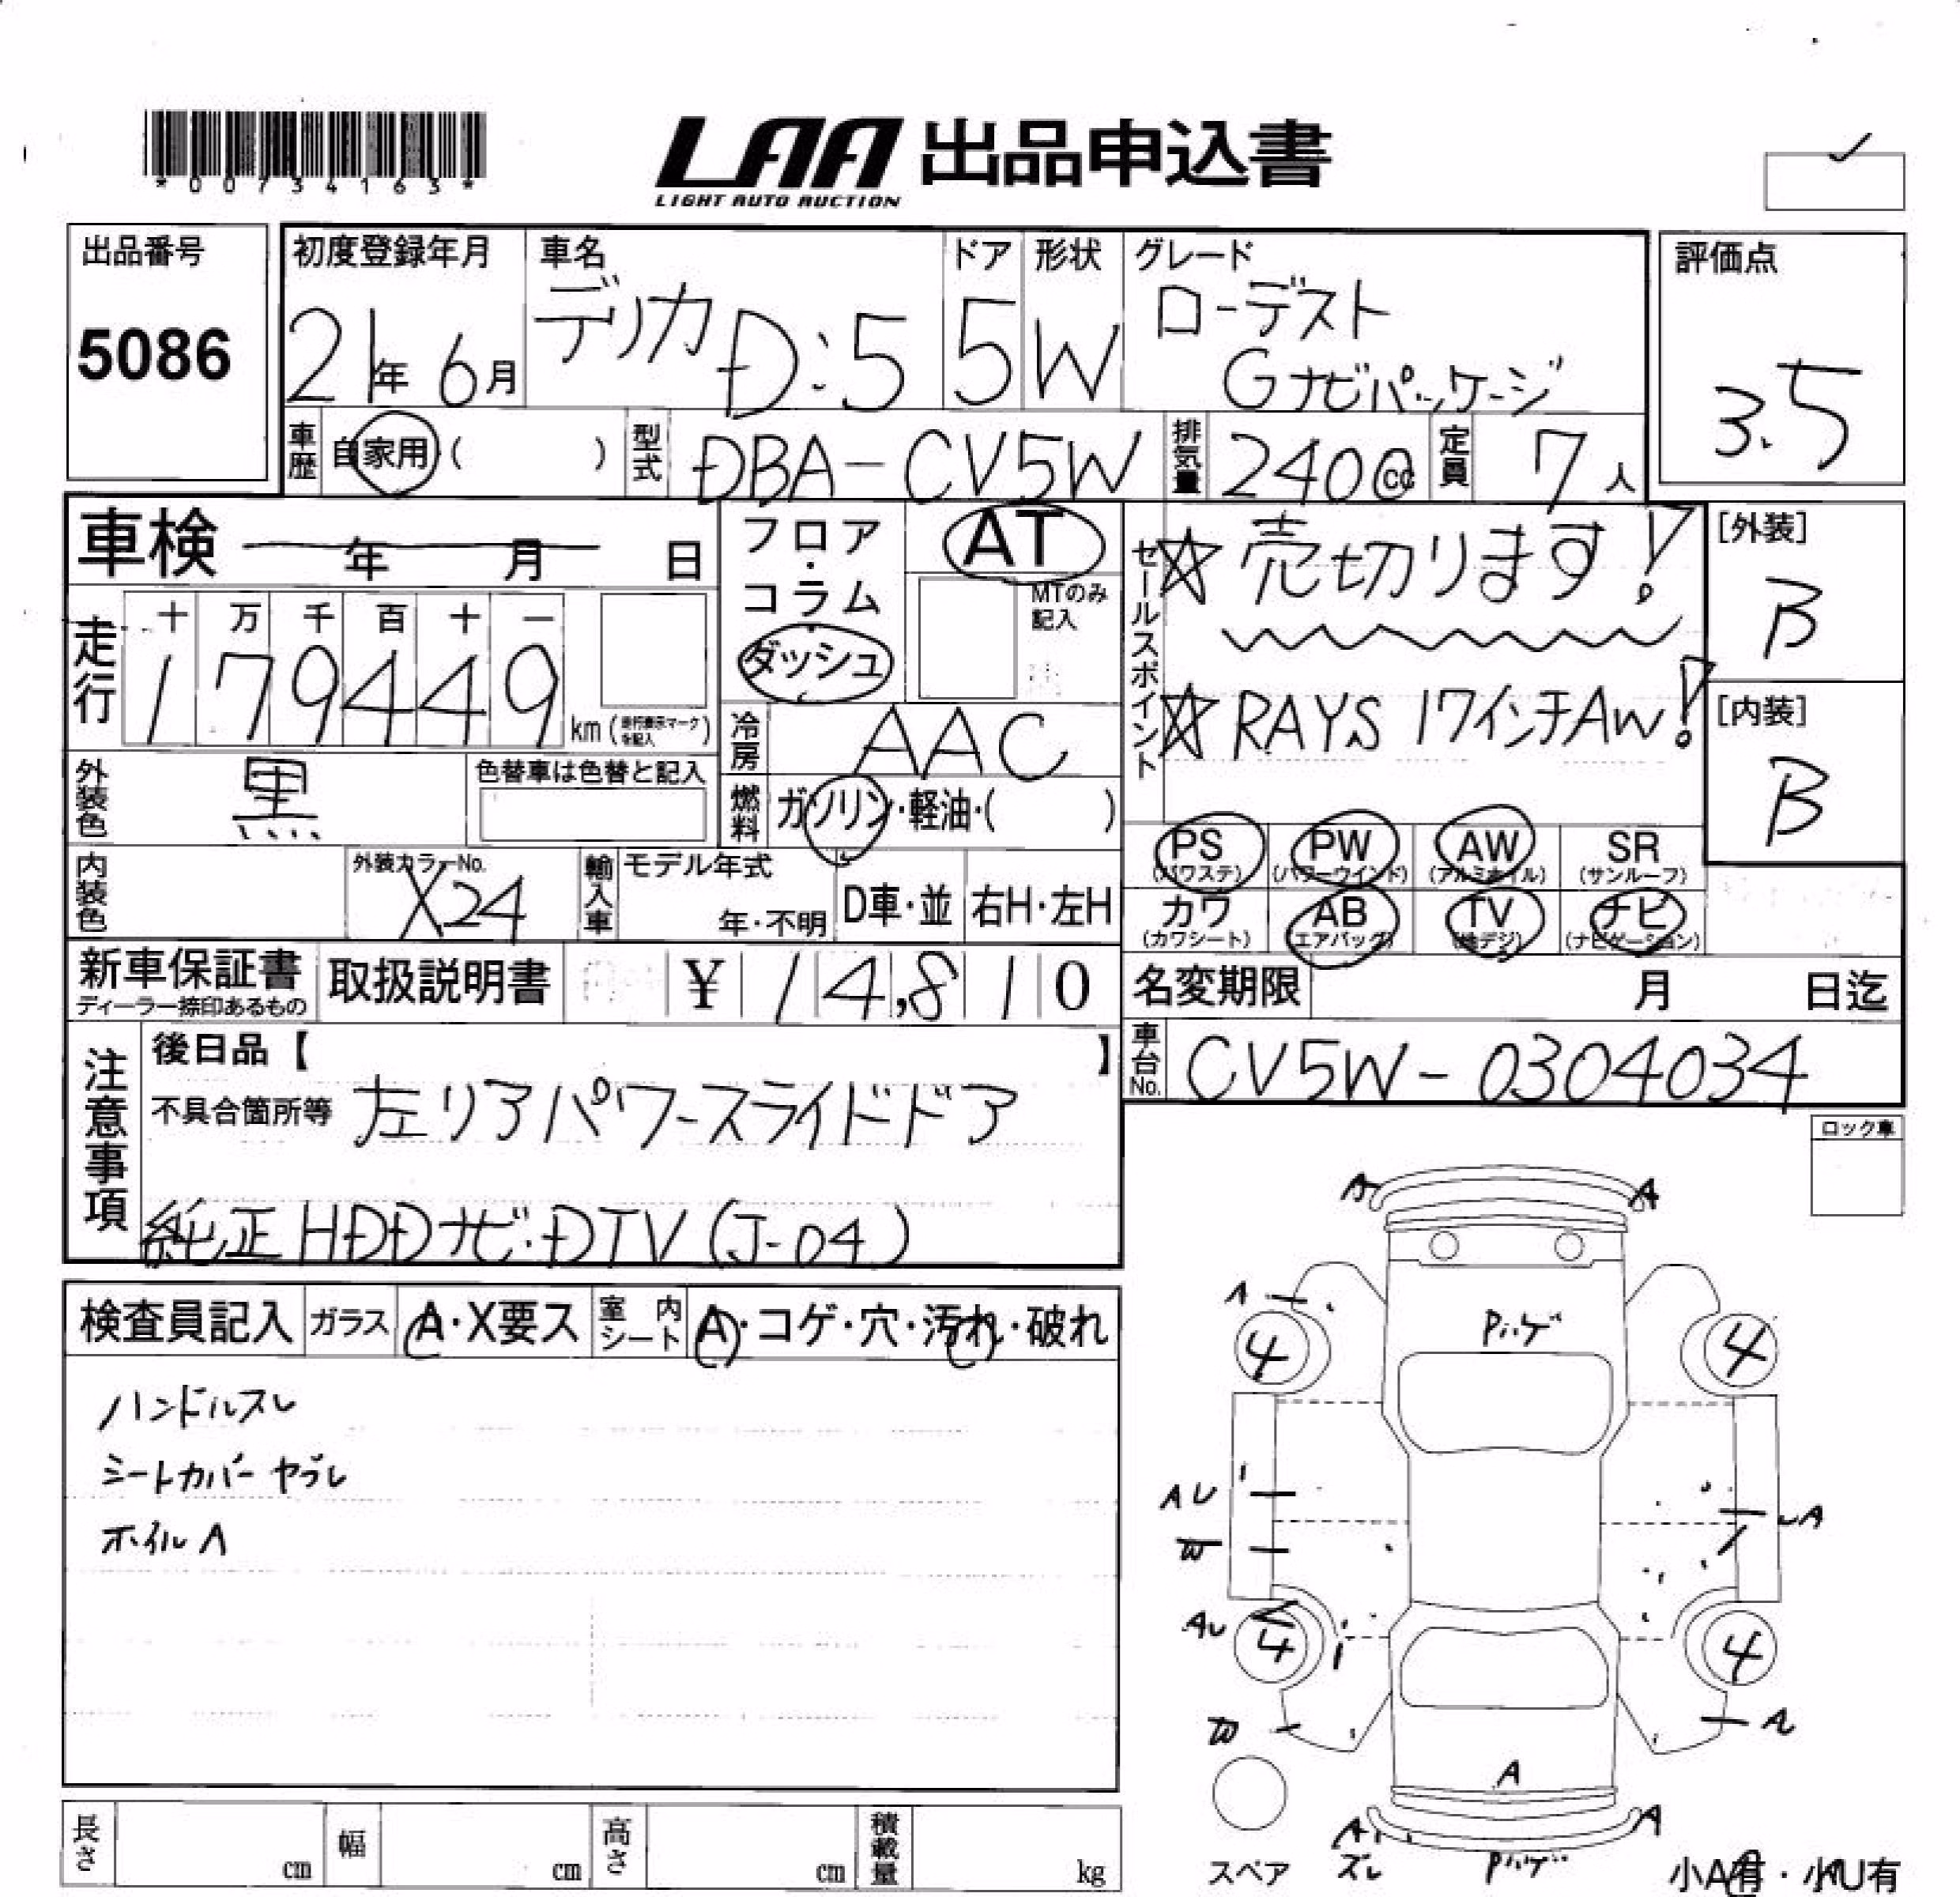 *00734163*
LAA 出品申込書
LIGHT AUTO AUCTION
出品番号
5086
初度登録年月
21年 6月
車名
デリカ D:5
ドア
5
形状
W
グレード
ローデスト
Gナビパッケージ
評価点
3.5
車歴 自家用 ( )
型式 DBA-CV5W
排気量 2400cc
定員 7人
車検 年 月 日
フロア・コラム・ダッシュ
AT
MTのみ記入
セールスポイント
☆売切ります!
☆RAYS 17インチAW!
[外装]
B
[内装]
B
走行
十 万 千 百 十 一
1 7 9 4 4 9
km (走行表示マークを記入)
冷房 AAC
外装色 黒
色替車は色替と記入
燃料 ガソリン・軽油・( )
PS (パワステ) PW (パワーウインド) AW (アルミホイル) SR (サンルーフ)
カワ (カワシート) AB (エアバッグ) TV (地デジ) ナビ (ナビゲーション)
内装色
外装カラーNo.
X24
輸入車 モデル年式
年・不明
D車・並 右H・左H
新車保証書
ディーラー捺印あるもの
取扱説明書
¥14,810
名変期限 月 日迄
車台No. CV5W-0304034
注意事項
後日品【 】
不具合箇所等 左リアパワースライドドア
純正HDDナビ・DTV(J-04)
ロック車
検査員記入 ガラス A・X要ス 室内シート A・コゲ・穴・汚れ・破れ
ハンドルスレ
シートカバーヤブレ
ホイルA
A A
A
Pハゲ
4 4
AU
W
UA
AU
4 4
W
A
A
A
A
ズレ
Pハゲ
スペア
小A有・小U有
長さ cm 幅 cm 高さ cm 積載量 kg